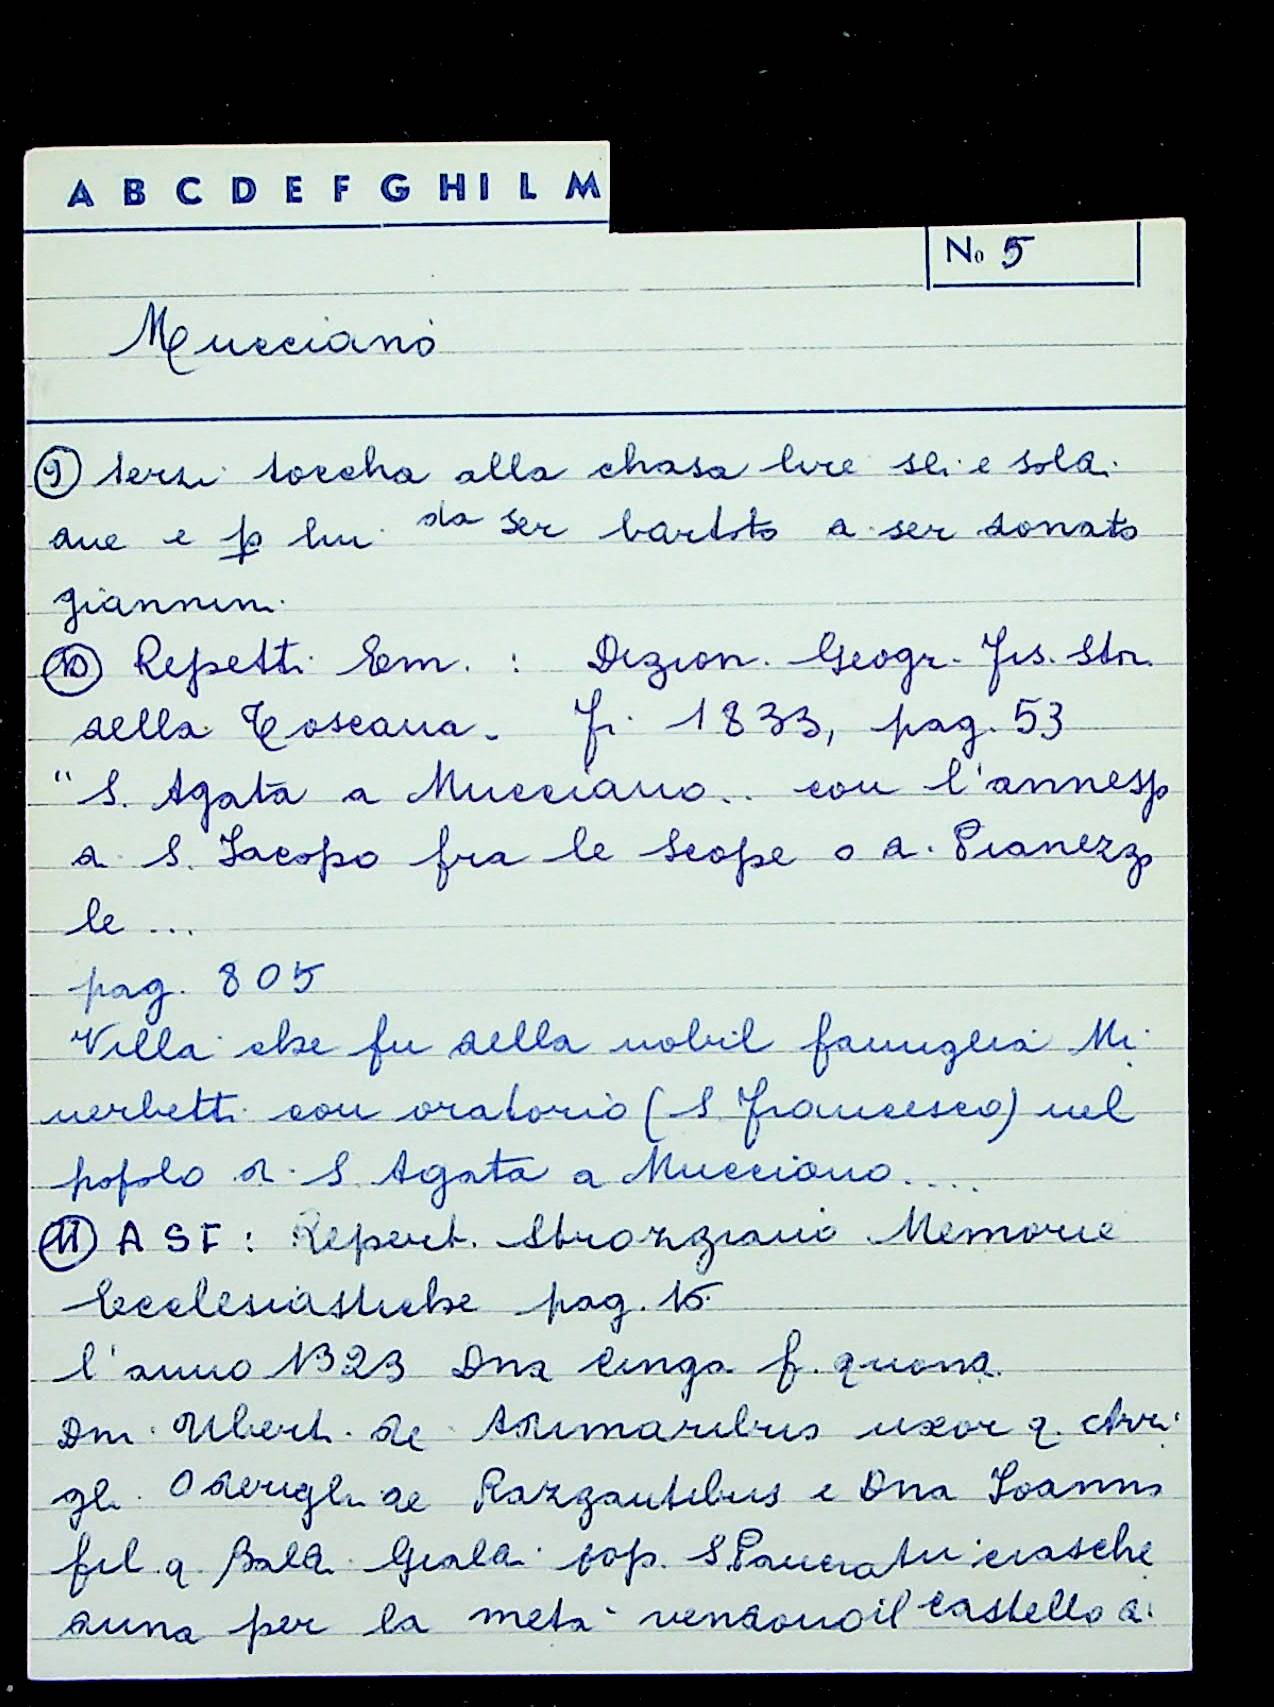 A B C D E F G H I L M
No 5
Mucciano
9) terzi toccha alla chasa lire sei e soldi
due e p lui da Ser bartolo a ser donato
giannini
10) Repetti Em. : Dizion. Geogr. Fis. Stor.
della Toscana. Fi 1833, pag. 53
"S. Agata a Mucciano.. con l'annesso
di S. Jacopo fra le Scope o a Pianezzo
le ...
pag. 805
Villa che fu della nobil famiglia Mi
nerbetti con oratorio (S Francesco) nel
popolo di S Agata a Mucciano....
11) A S F : Repert. Strozziano Memorie
Ecclesiastiche pag. 15
l'anno 1323 Dna f. quond.
Dni Uberti de Adimaribus uxor q.
de Razzantibus e Dna Joanna
fil q. Baldi pop. S. Pancratii ciasche
duna per la metà vendono il castello di